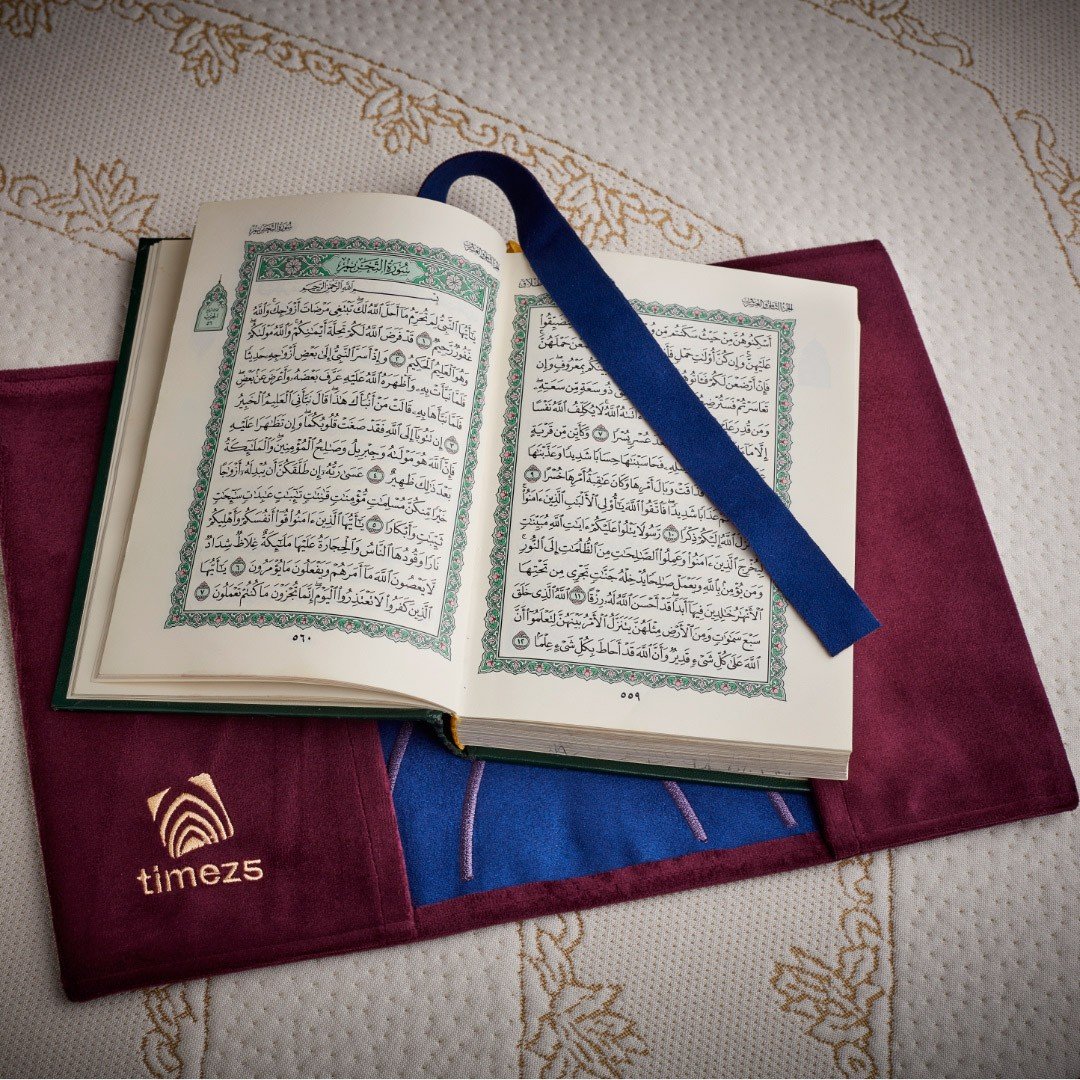 الجزء الثامن والعشرون
أَسْكِنُوهُنَّ مِنْ حَيْثُ سَكَنتُم مِّن
عَلَيْهِنَّ وَإِن كُنَّ أُو۟لَـٰتِ حَمْلٍ حَمْلَهُنَّ
فَإِنْ أَرْضَعْنَ لَكُمْ بِمَعْرُوفٍ وَإِن
تَعَاسَرْتُمْ فَسَتُرْضِعُ ذُو سَعَةٍ مِّن سَعَتِهِۦ
وَمَن قُدِرَ ٱللَّهُ لَا يُكَلِّفُ ٱللَّهُ نَفْسًا
إِلَّا مَآ عُسْرٍ يُسْرًا ٧ وَكَأَيِّن مِّن قَرْيَةٍ
فَحَاسَبْنَـٰهَا حِسَابًا شَدِيدًا وَعَذَّبْنَـٰهَا
وَبَالَ أَمْرِهَا وَكَانَ عَـٰقِبَةُ أَمْرِهَا خُسْرًا ٩
عَذَابًا شَدِيدًا فَٱتَّقُوا۟ ٱللَّهَ يَـٰٓأُو۟لِى ٱلْأَلْبَـٰبِ ٱلَّذِينَ ءَامَنُوا۟
ٱللَّهُ إِلَيْكُمْ ذِكْرًا ١٠ رَّسُولًا يَتْلُوا۟ عَلَيْكُمْ ءَايَـٰتِ ٱللَّهِ مُبَيِّنَـٰتٍ
ٱلَّذِينَ ءَامَنُوا۟ وَعَمِلُوا۟ ٱلصَّـٰلِحَـٰتِ مِنَ ٱلظُّلُمَـٰتِ إِلَى ٱلنُّورِ
وَمَن يُؤْمِنۢ بِٱللَّهِ وَيَعْمَلْ صَـٰلِحًا يُدْخِلْهُ جَنَّـٰتٍ تَجْرِى مِن تَحْتِهَا
ٱلْأَنْهَـٰرُ خَـٰلِدِينَ فِيهَآ أَبَدًا قَدْ أَحْسَنَ ٱللَّهُ لَهُۥ رِزْقًا ١١ ٱللَّهُ ٱلَّذِى خَلَقَ
سَبْعَ سَمَـٰوَٰتٍ وَمِنَ ٱلْأَرْضِ مِثْلَهُنَّ يَتَنَزَّلُ ٱلْأَمْرُ بَيْنَهُنَّ لِتَعْلَمُوٓا۟ أَنَّ
ٱللَّهَ عَلَىٰ كُلِّ شَىْءٍ قَدِيرٌ وَأَنَّ ٱللَّهَ قَدْ أَحَاطَ بِكُلِّ شَىْءٍ عِلْمًۢا ١٢
٥٥٩
سورة التحريم
سُورَةُ التَّحْرِيمِ
بِسْمِ ٱللَّهِ ٱلرَّحْمَـٰنِ ٱلرَّحِيمِ
يَـٰٓأَيُّهَا ٱلنَّبِىُّ لِمَ تُحَرِّمُ مَآ أَحَلَّ ٱللَّهُ لَكَ تَبْتَغِى مَرْضَاتَ أَزْوَٰجِكَ وَٱللَّهُ
غَفُورٌ رَّحِيمٌ ١ قَدْ فَرَضَ ٱللَّهُ لَكُمْ تَحِلَّةَ أَيْمَـٰنِكُمْ وَٱللَّهُ مَوْلَىٰكُمْ
وَهُوَ ٱلْعَلِيمُ ٱلْحَكِيمُ ٢ وَإِذْ أَسَرَّ ٱلنَّبِىُّ إِلَىٰ بَعْضِ أَزْوَٰجِهِۦ حَدِيثًا
فَلَمَّا نَبَّأَتْ بِهِۦ وَأَظْهَرَهُ ٱللَّهُ عَلَيْهِ عَرَّفَ بَعْضَهُۥ وَأَعْرَضَ عَنۢ بَعْضٍ
فَلَمَّا نَبَّأَهَا بِهِۦ قَالَتْ مَنْ أَنۢبَأَكَ هَـٰذَا قَالَ نَبَّأَنِىَ ٱلْعَلِيمُ ٱلْخَبِيرُ
٣ إِن تَتُوبَآ إِلَى ٱللَّهِ فَقَدْ صَغَتْ قُلُوبُكُمَا وَإِن تَظَـٰهَرَا عَلَيْهِ
فَإِنَّ ٱللَّهَ هُوَ مَوْلَىٰهُ وَجِبْرِيلُ وَصَـٰلِحُ ٱلْمُؤْمِنِينَ وَٱلْمَلَـٰٓئِكَةُ
بَعْدَ ذَٰلِكَ ظَهِيرٌ ٤ عَسَىٰ رَبُّهُۥٓ إِن طَلَّقَكُنَّ أَن يُبْدِلَهُۥٓ أَزْوَٰجًا
خَيْرًا مِّنكُنَّ مُسْلِمَـٰتٍ مُّؤْمِنَـٰتٍ قَـٰنِتَـٰتٍ تَـٰٓئِبَـٰتٍ عَـٰبِدَٰتٍ سَـٰٓئِحَـٰتٍ
ثَيِّبَـٰتٍ وَأَبْكَارًا ٥ يَـٰٓأَيُّهَا ٱلَّذِينَ ءَامَنُوا۟ قُوٓا۟ أَنفُسَكُمْ وَأَهْلِيكُمْ
نَارًا وَقُودُهَا ٱلنَّاسُ وَٱلْحِجَارَةُ عَلَيْهَا مَلَـٰٓئِكَةٌ غِلَاظٌ شِدَادٌ
لَّا يَعْصُونَ ٱللَّهَ مَآ أَمَرَهُمْ وَيَفْعَلُونَ مَا يُؤْمَرُونَ ٦ يَـٰٓأَيُّهَا
ٱلَّذِينَ كَفَرُوا۟ لَا تَعْتَذِرُوا۟ ٱلْيَوْمَ إِنَّمَا تُجْزَوْنَ مَا كُنتُمْ تَعْمَلُونَ ٧
٥٦٠
timez5